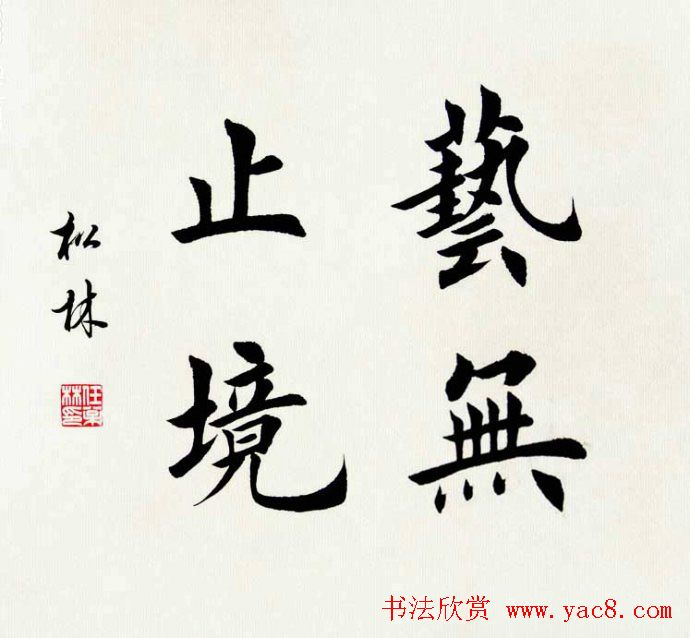 藝無
止境
松林
书法欣赏 www.yac8.com